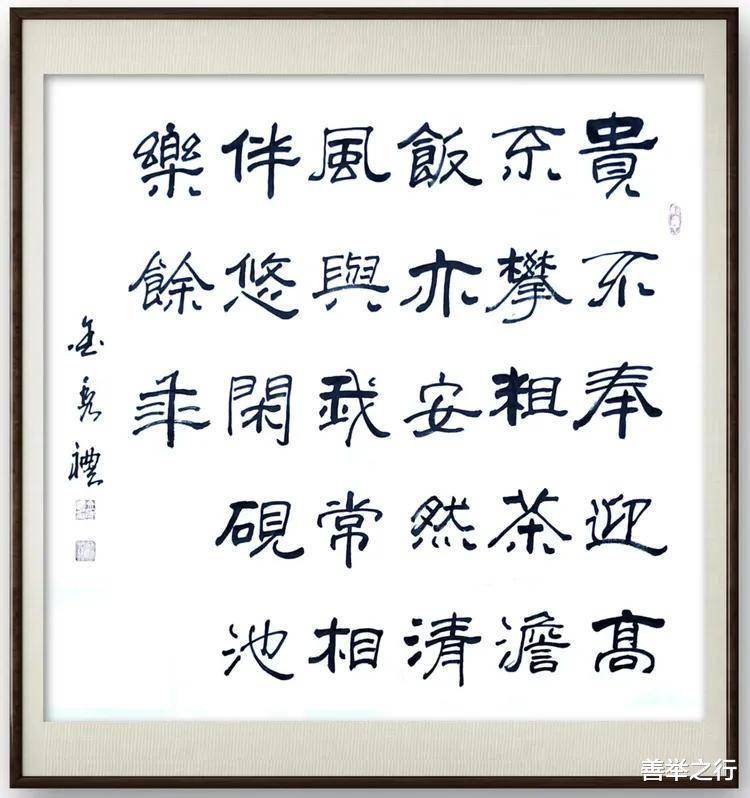 貴不奉迎高
不攀粗茶澹
飯亦安然清
風與我常相
伴悠閑硯池
樂餘年
金禮
善举之行